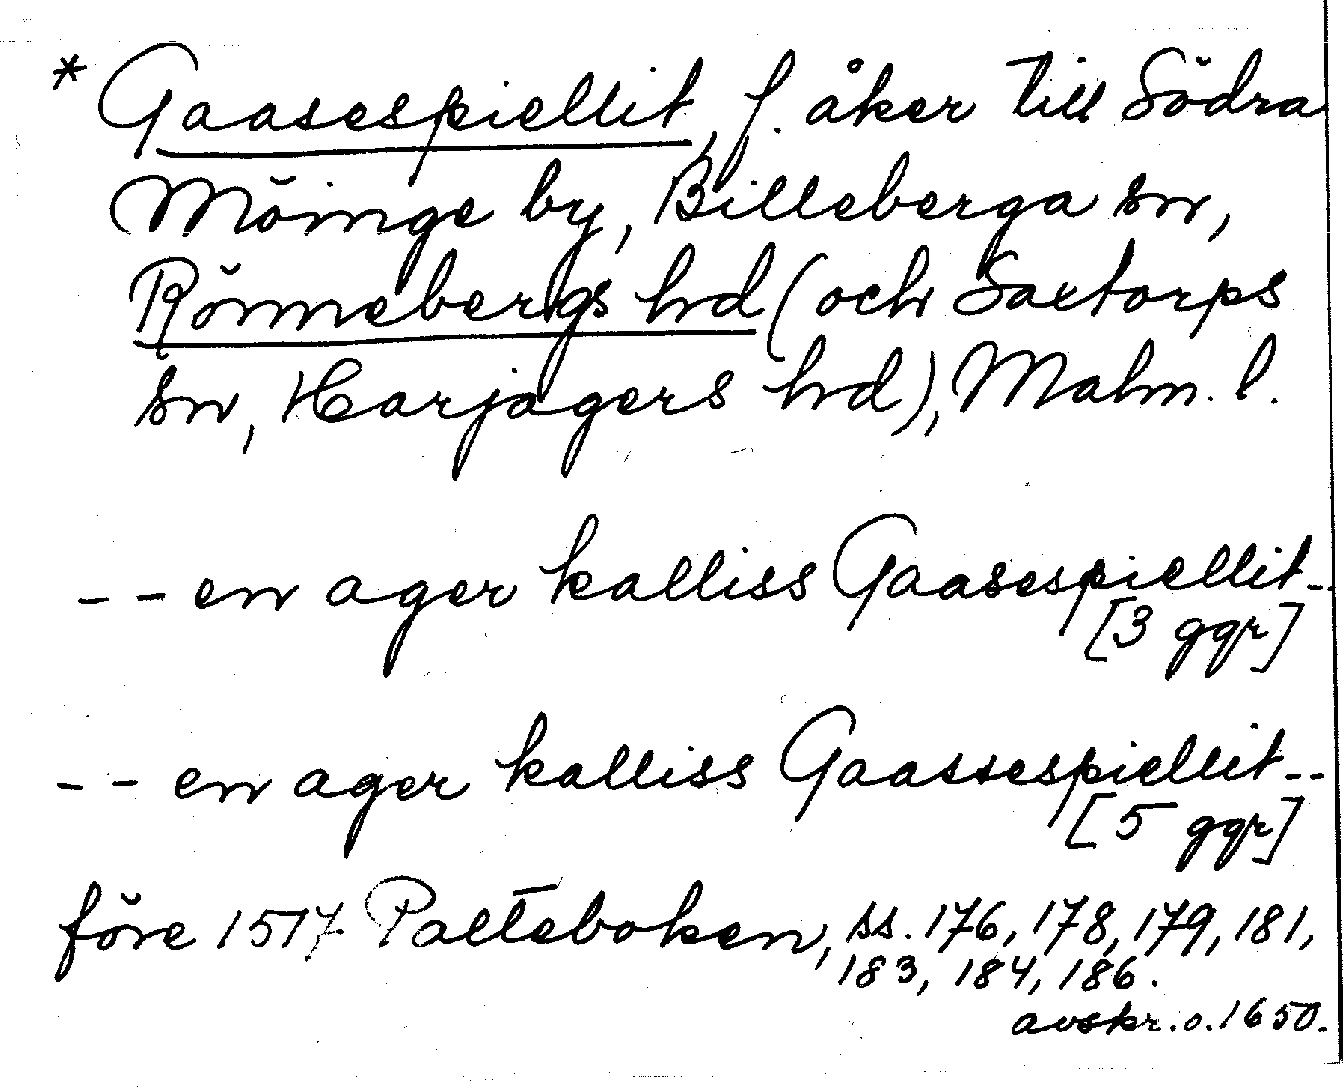 * Gaasespiellit, f. åker till Södra
Möinge by, Billeberga sn,
Rönnebergs hd (och Saxtorps
sn, Harjagers hd), Malm. l.
-- en ager kalliss Gaasespiellit--
[3 ggr]
-- en ager kalliss Gaassespiellit--
[5 ggr]
före 1517 Palteboken, ss. 176, 178, 179, 181,
183, 184, 186.
avskr. o. 1650.